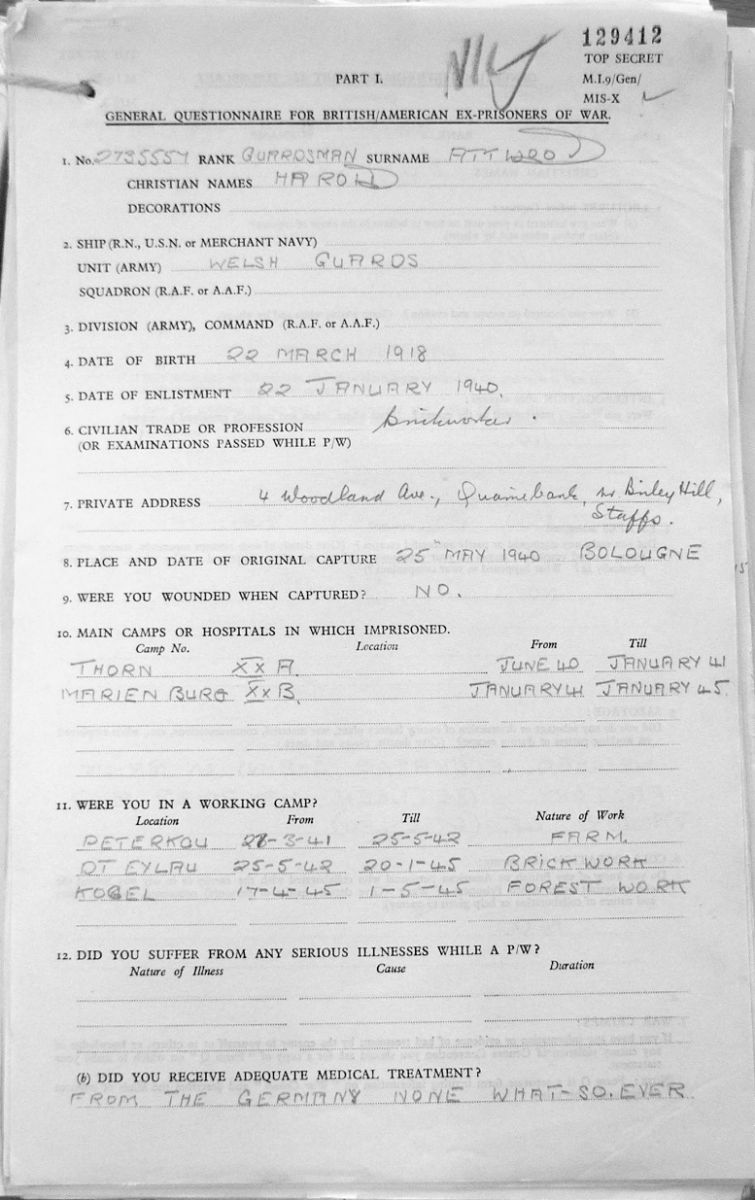 129412
TOP SECRET
PART I.
M.I.9/Gen/
MIS-X
GENERAL QUESTIONNAIRE FOR BRITISH/AMERICAN EX-PRISONERS OF WAR.
1. No. 2735557 RANK GUARDSMAN SURNAME ATTWOOD
CHRISTIAN NAMES HAROLD
DECORATIONS
2. SHIP (R.N., U.S.N. or MERCHANT NAVY)
UNIT (ARMY) WELSH GUARDS
SQUADRON (R.A.F. or A.A.F.)
3. DIVISION (ARMY), COMMAND (R.A.F. or A.A.F.)
4. DATE OF BIRTH 22 MARCH 1918
5. DATE OF ENLISTMENT 22 JANUARY 1940.
6. CIVILIAN TRADE OR PROFESSION Brickworker.
(OR EXAMINATIONS PASSED WHILE P/W)
7. PRIVATE ADDRESS 4 Woodland Ave., Hill,
Staffs.
8. PLACE AND DATE OF ORIGINAL CAPTURE 25th MAY 1940 BOLOUGNE
9. WERE YOU WOUNDED WHEN CAPTURED? NO.
10. MAIN CAMPS OR HOSPITALS IN WHICH IMPRISONED.
Camp No. Location From Till
THORN XXA. JUNE 40 JANUARY 41
MARIEN BURG XXB. JANUARY 41 JANUARY 45.
11. WERE YOU IN A WORKING CAMP?
Location From Till Nature of Work
PETERKOU 3-41 25-5-42 FARM.
DT EYLAU 25-5-42 20-1-45 BRICK WORK
KOBEL 17-4-45 1-5-45 FOREST WORK
12. DID YOU SUFFER FROM ANY SERIOUS ILLNESSES WHILE A P/W?
Nature of Illness Cause Duration
(b) DID YOU RECEIVE ADEQUATE MEDICAL TREATMENT?
FROM THE GERMANY NONE WHAT-SO.EVER